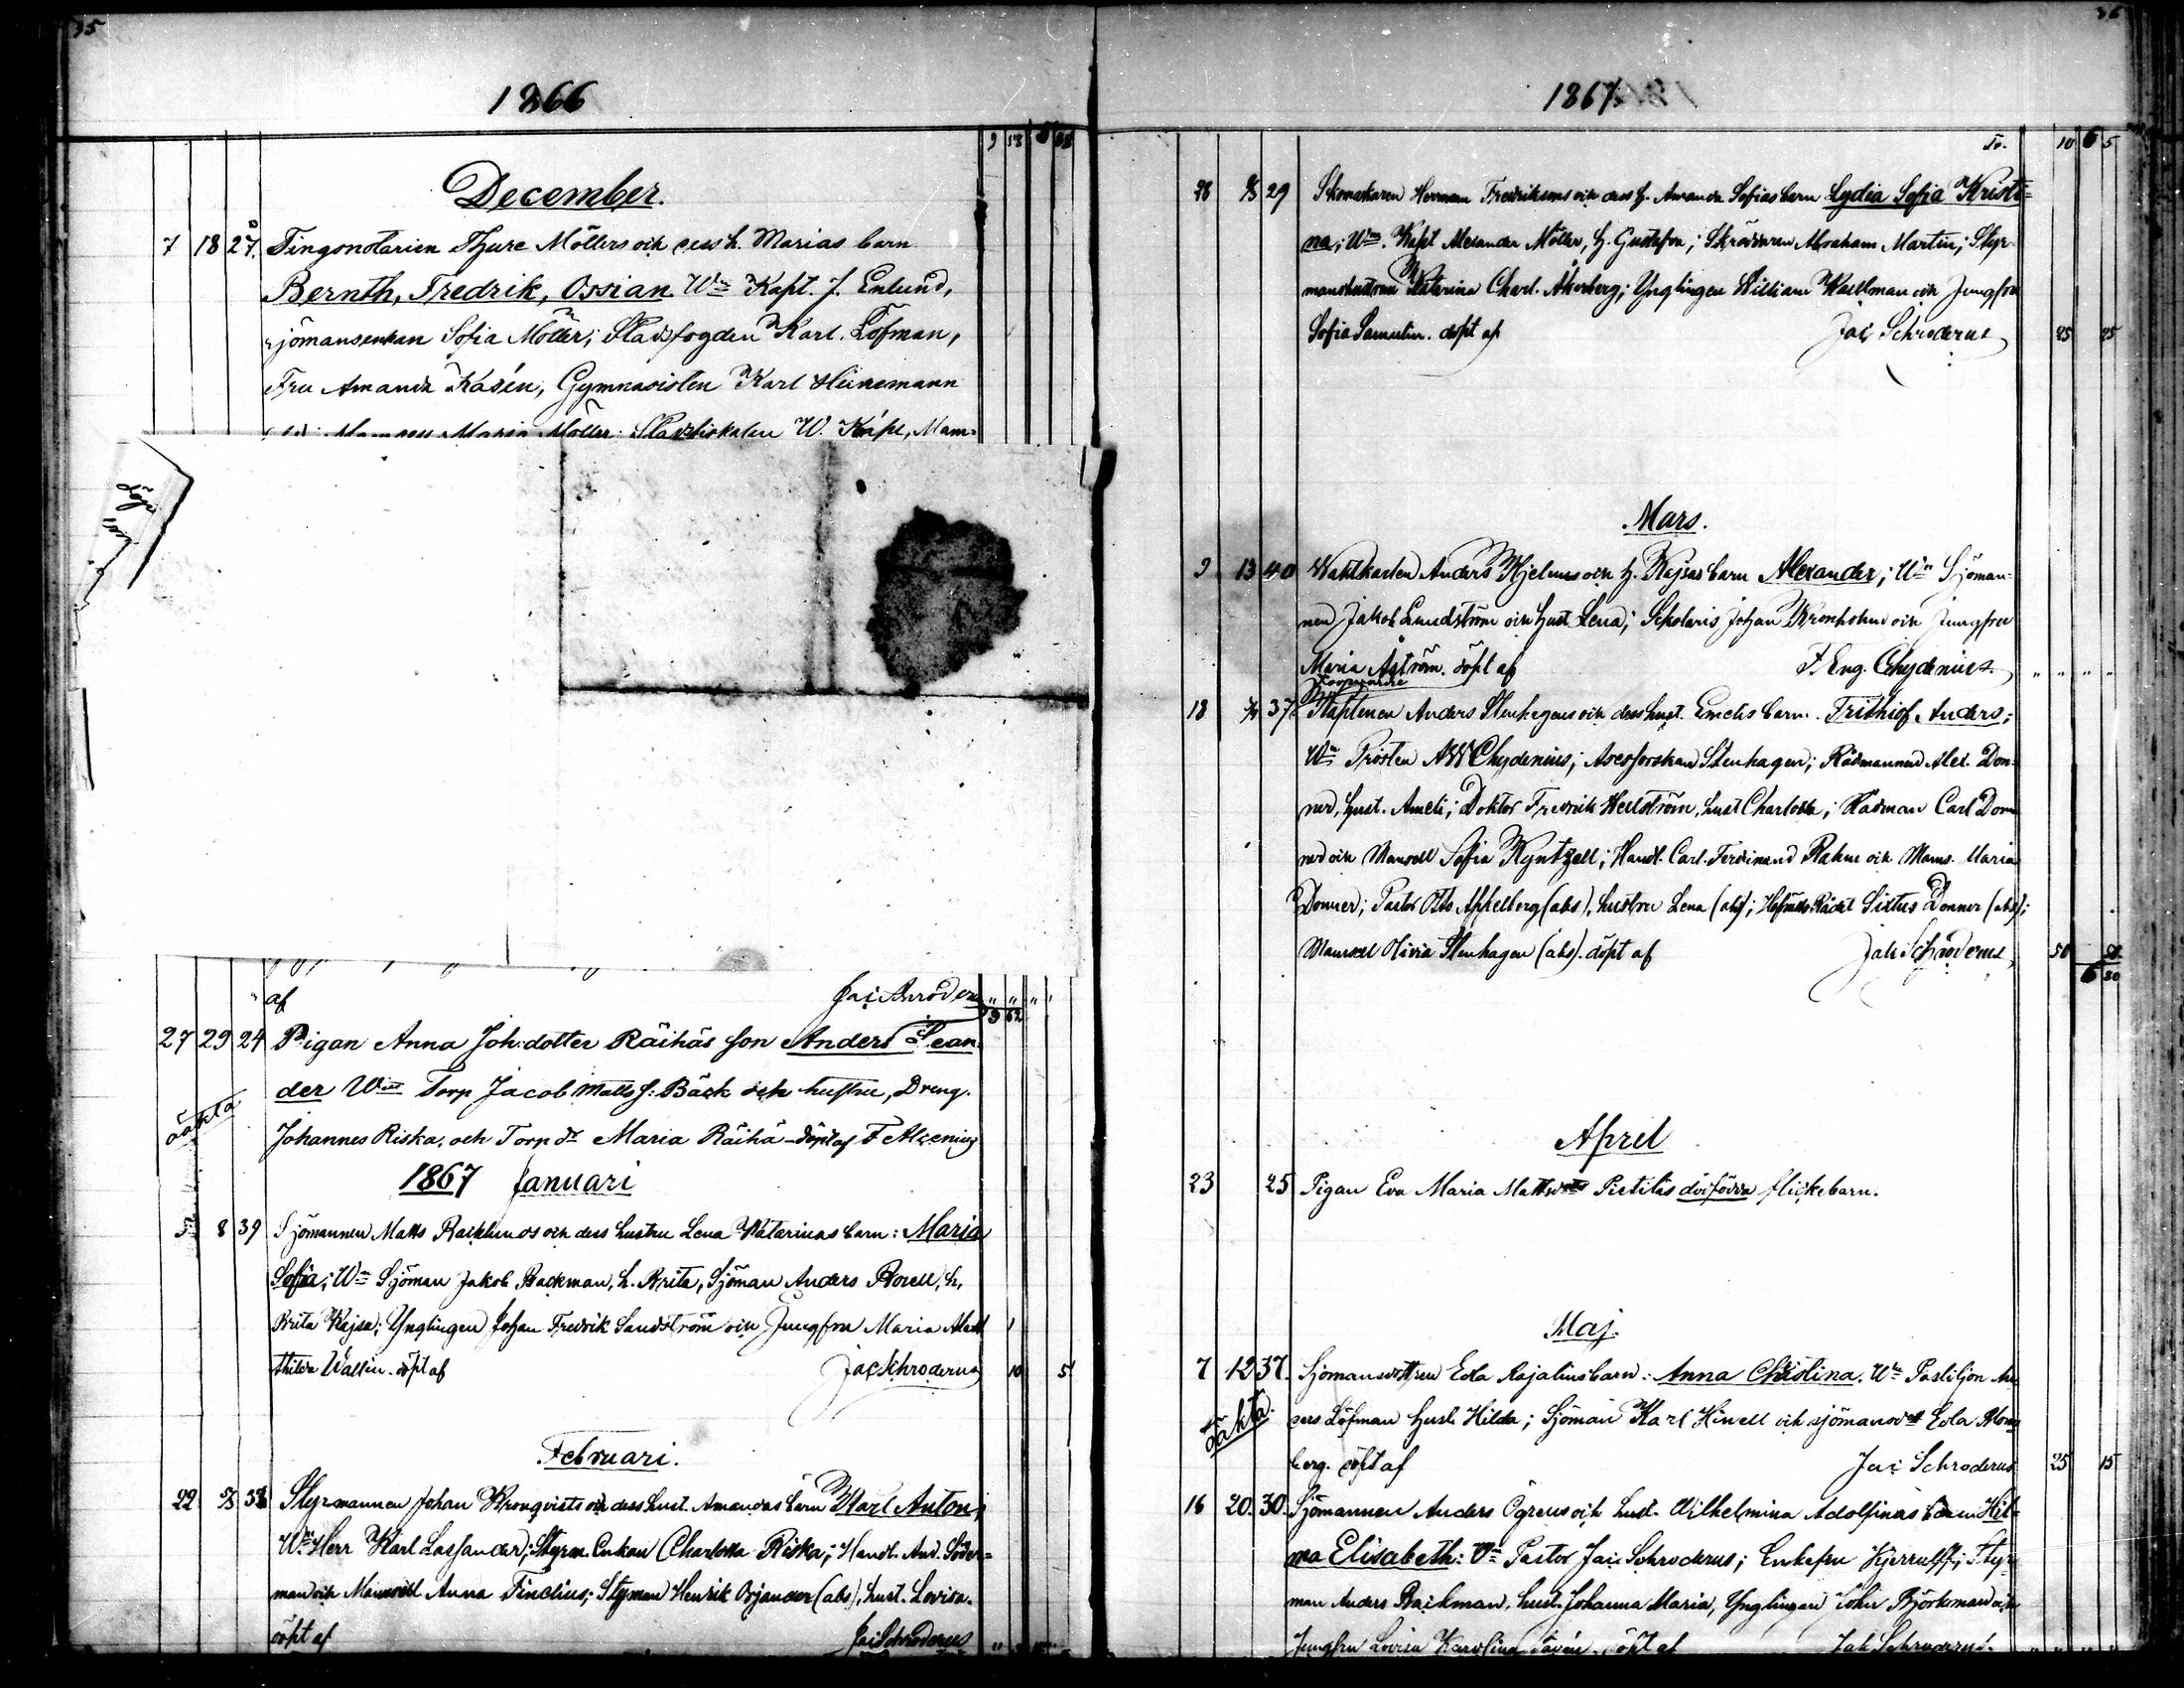 35
1866
9 58 5 88
December.
7 18 27. Tingsnotarien Thure Möllers och dess h. Marias barn
Bernth, Fredrik, Ossian. Wne Kapt. J. Enlund,
sjömansenkan Sofia Möller; Stadsfogden Karl Löfman,
Fru Amanda Kasén, Gymnasisten Karl Heinemann
Mamsell Maria Möller. Stadsfiskalen W. Mam-
af Jac Schroderus " " " "
9 62
27 29 24 Pigan Anna Joh:dotter Räihäs son Anders Lean-
der Wne Torp Jacob Matts s: Bäck och hustru, Dreng.
oäkta Johannes Riska, och Torp dr Maria Räihä döpt af F Alcenius
1867 Januari
5 8 39 Sjömannen Matts Backlunds och dess hustru Lena Katarinas barn: Maria
Sofia; Wne Sjöman Jakob Backman, h. Brita, Sjöman Anders Borell, h.
Brita Kajsa; Ynglingen Johan Fredrik Sandström och Jungfru Maria
thilda Wallin. döpt af Jac Schroderus 10 5
Februari.
22 38 Styrmannen Johan Kronqvists och dess hust. Amandas barn Karl Anton;
Wne Herr Karl Lassander; Styrm. Enkan Charlotta Riska; Handl. And. Söder-
man och Mamsell Anna Finelius; Styrman Henrik Orjander (abs), hust. Lovisa.
döpt af Jac Schroderus
36
1867
Tr. 10 6 5
28 29 Skomakaren Herman Fredriksons och dess h. Amanda Sofias barn Lydia Sofia Kristi-
na; Wne. Kapt Alexander Möller, h. Gustafva; Skräddaren Abraham Martin; Styr-
manshustrun Katarina Charl. Åkerberg; Ynglingen William Kjellman och Jungfru
Sofia Samulin. döpt af Jac Schroderus 25 25
Mars.
9 13 40 Waktkarlen Anders Hjelms och h. Kajsas barn Alexander; Wne Sjöman-
nen Jakob Lundström och hust Lena; Scholaris Johan Kronholm och Jungfru
Maria Åström. döpt af F. Eng. Chydenius. " " " "
Koopvardie
18 37. Kaptenen Anders Stenhagens och dess hust. Emelis barn. Frithiof Anders;
Wne Prosten AW Chydenius; Assessorskan Stenhagen; Rådmannen Alex. Don-
ner, hust. Ameli; Doktor Fredrik Hellström, hust Charlotta; Rådman Carl Don-
ner och Mamsell Sofia Kyntzell; Handl. Carl Ferdinand Rahm och Mams. Maria
Donner; Pastor Otto Appelberg (abs), hustru Lena (abs); Hofrätts Rådet Sixtus Donner (abs);
Mamsell Olivia Stenhagen (abs). döpt af Jak Schroderus 50 50
6 80
April
23 25 Pigan Eva Maria Mattsdotter Pietiläs dödfödda flickebarn.
Maj.
7 12 37. Sjömansdottren Eda Rajalins barn: Anna Christina. Wne Postiljon An-
oäkta. ders Löfman hust Hilda; Sjöman Karl Hinell och sjömansdott Eda Blom-
berg. döpt af Jac Schroderus 25 15
16 20. 30. Sjömannen Anders Ögrens och hust. Wilhelmina Adolfinas barn Hil-
ma Elisabeth: Wne Pastor Jac Schroderus; Enkefru Kjerrulff; Styr-
man Anders Backman, hust. Johanna Maria, Ynglingen Johan Björkman och
Jungfru Lovisa Karolina döpt af Jak Schroderus.